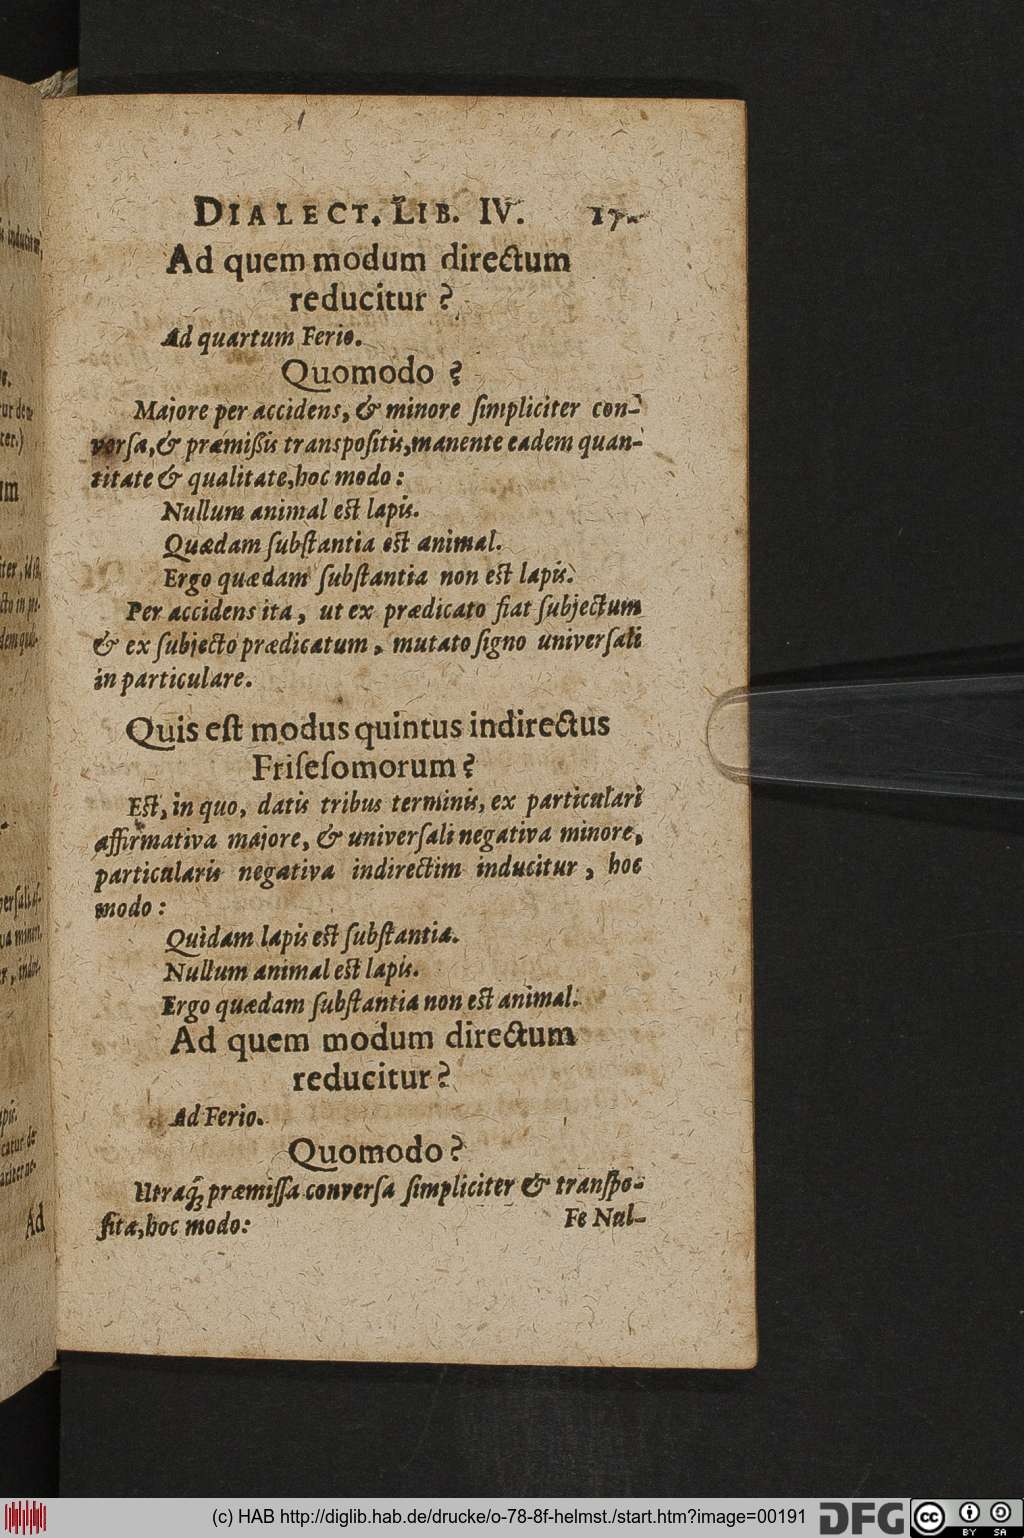 DIALECT. LIB. IV.
Ad quem modum directum
reducitur?
Ad quartum Ferio.
Quomodo?
Majore per accidens, & minore ſimpliciter con-
verſa, & præmißis transpoſitis, manente eadem quan-
titate & qualitate, hoc modo:
Nullum animal est lapis.
Quædam ſubſtantia est animal.
Ergo quædam ſubſtantia non est lapis.
Per accidens ita, ut ex prædicato fiat ſubjectum
& ex ſubjecto prædicatum, mutato ſigno univerſali
in particulare.
Quis eſt modus quintus indirectus
Friſeſomorum?
Est, in quo, datis tribus terminis, ex particulari
affirmativa majore, & univerſali negativa minore,
particularis negativa indirectim inducitur, hoc
modo:
Quidam lapis est ſubſtantia.
Nullum animal est lapis.
Ergo quædam ſubſtantia non est animal.
Ad quem modum directum
reducitur?
Ad Ferio.
Quomodo?
Utraq; præmiſſa converſa ſimpliciter & tranſpo-
ſita, hoc modo:
Fe Nul-
Ad
(c) HAB http://diglib.hab.de/drucke/o-78-8f-helmst./start.htm?image=00191
DFG
cc
BY SA